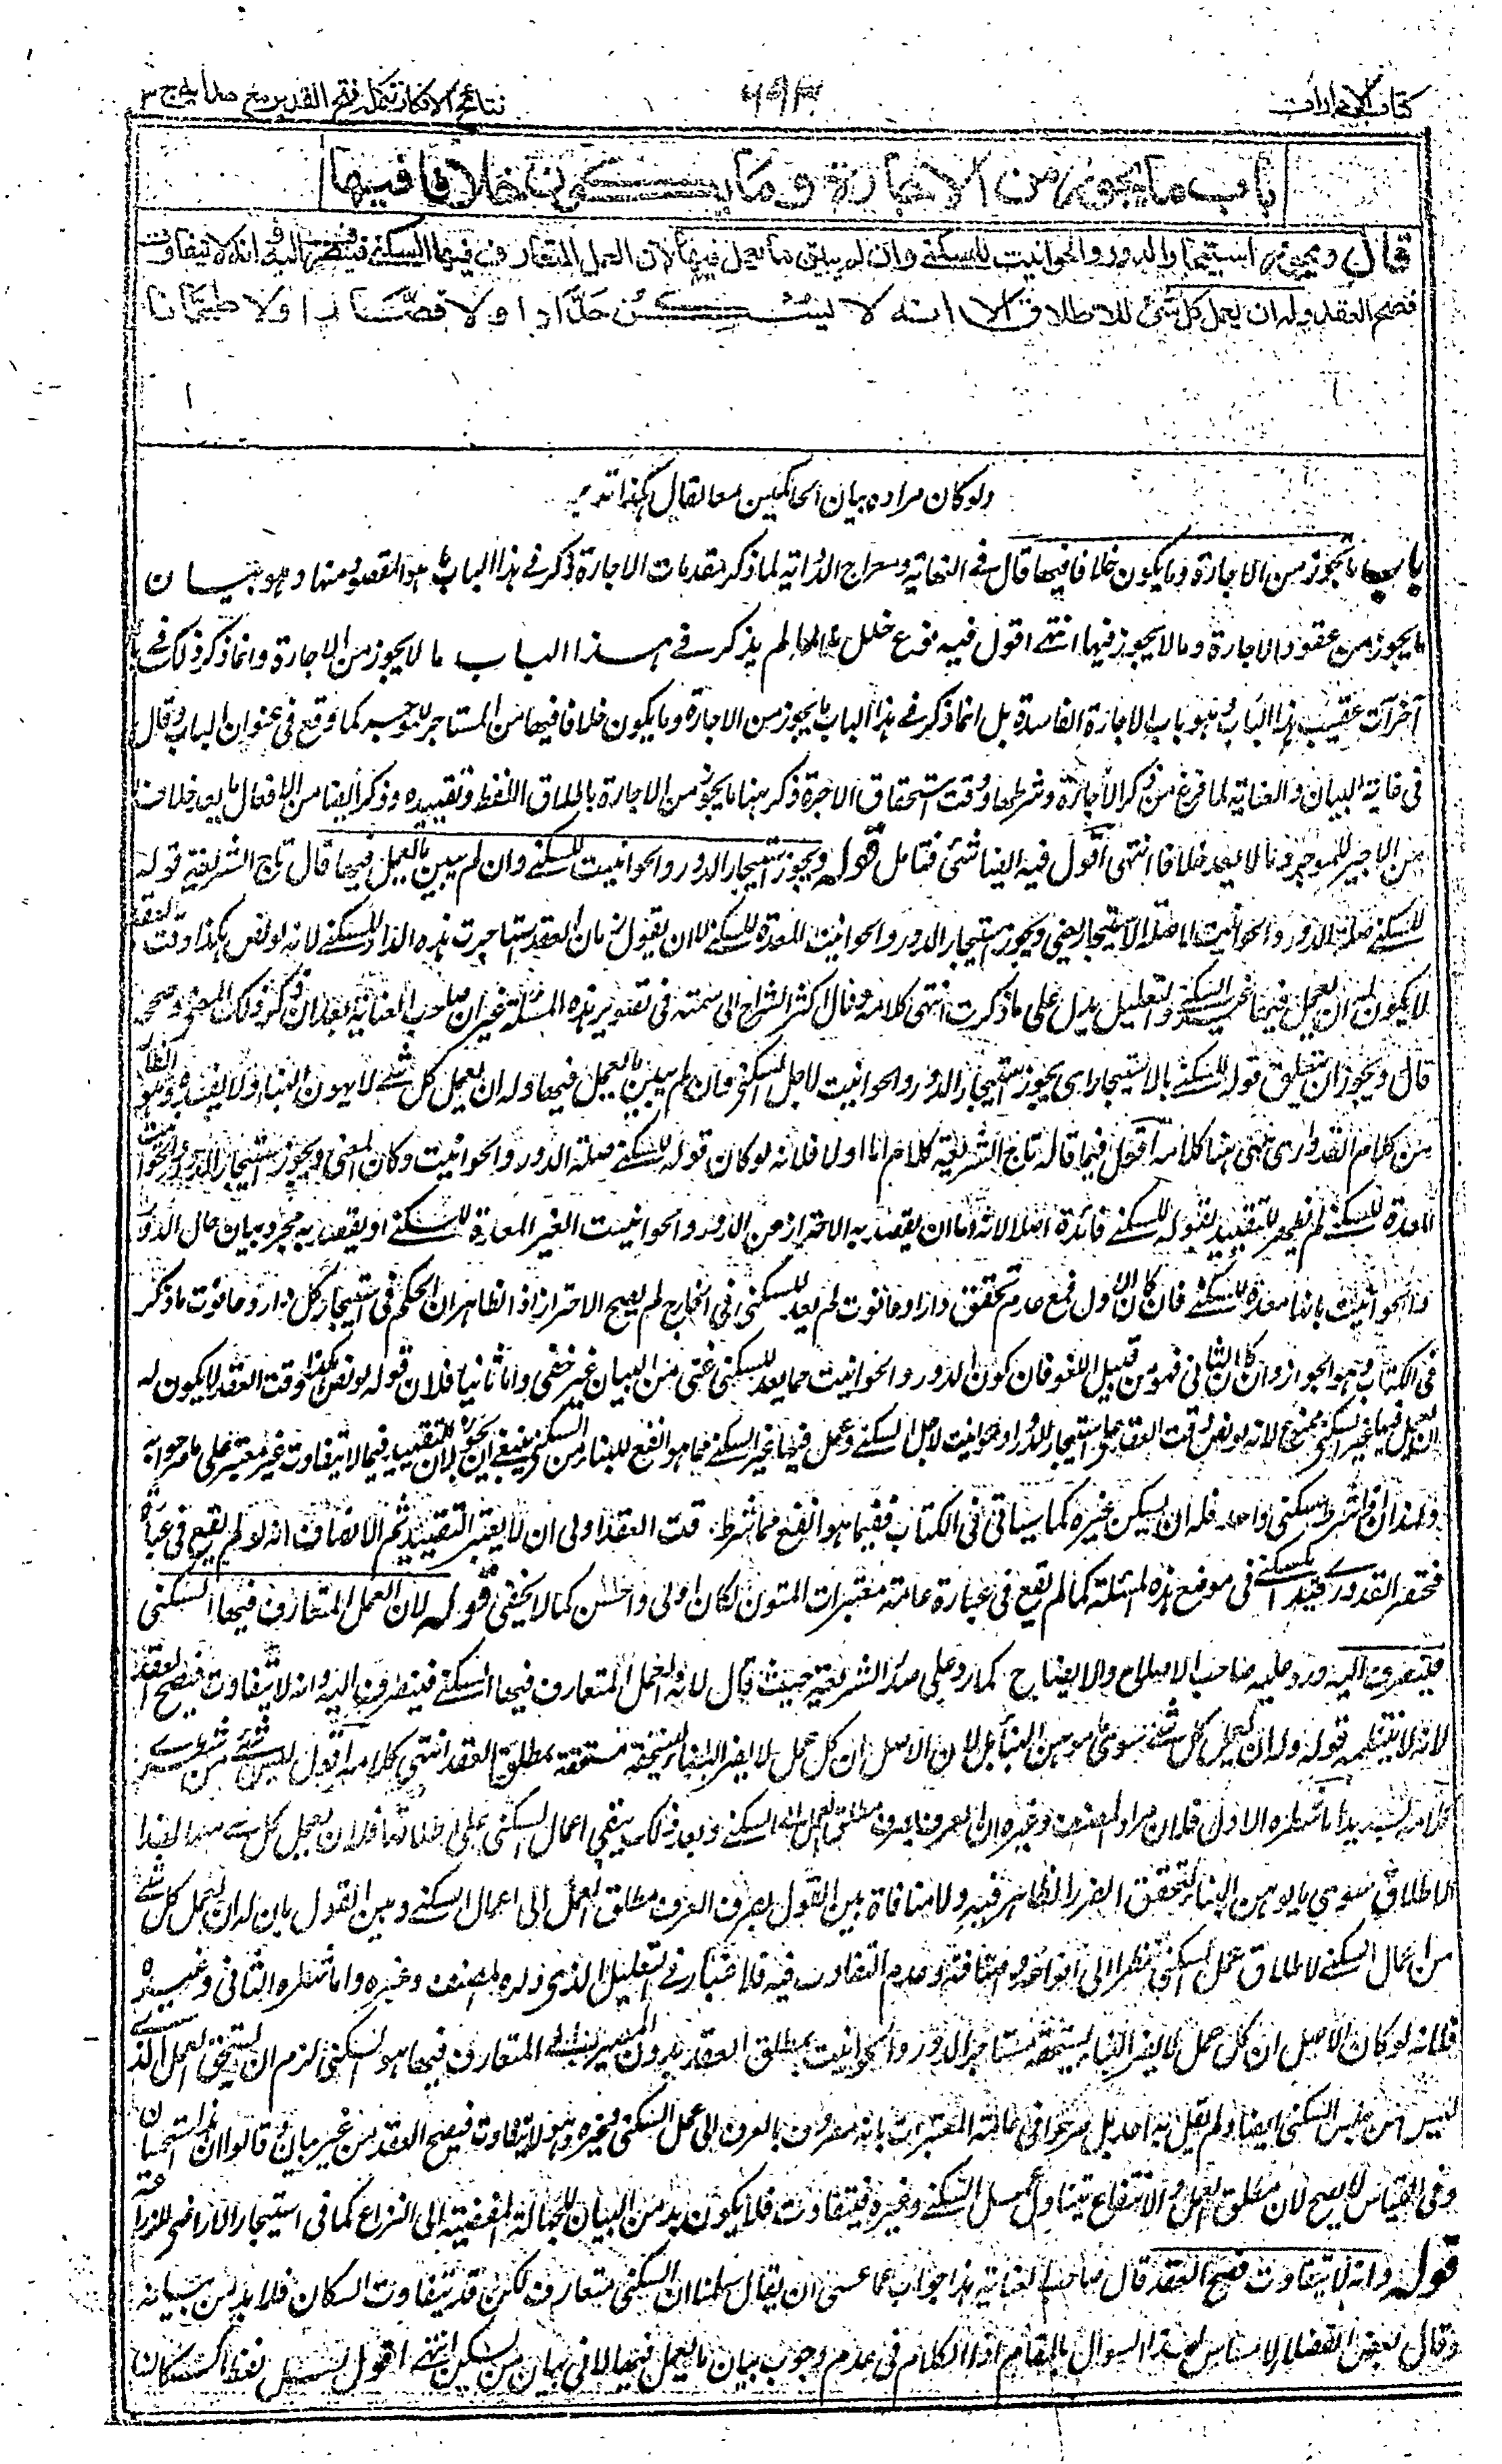 كتاب الاجارات
نتائج الافكار تكملة فتح القدير مع هداية ج ٣
باب ما يجوز من الاجارة وما يكون خلافا فيها
قال ويجوز استيجار الدور والحوانيت للسكنى وان لم يبين ما يعمل فيها لان العمل المتعارف فيها السكنى فينصرف اليه وانه لا يتفاوت
فصح العقد وله ان يعمل كل شئ للاطلاق الا انه لا يسكن حدادا ولا قصارا ولا طحانا
ولو كان مراده بيان الحكمين معا لقال هكذا تدبر
باب ما يجوز من الاجارة وما يكون خلافا فيها قال فى النهاية ومعراج الدراية لما ذكر مقدمات الاجارة ذكر فى هذا الباب ما هو المقصود منها وهو بيان
ما يجوز من عقود الاجارة وما لا يجوز فيها انتهى اقول فيه نوع خلل لم يذكر فى هذا الباب ما لا يجوز من الاجارة وانما ذكر ذلك فى باب
آخر آت عقيب هذا الباب وهو باب الاجارة الفاسدة بل انما ذكر فى هذا الباب ما يجوز من الاجارة وما يكون خلافا فيها من المستاجر للموجر كما وقع فى عنوان الباب وقال
فى غاية البيان والعناية لما فرغ من ذكر الاجارة وشرطها ووقت استحقاق الاجرة ذكر هنا ما يجوز من الاجارة باطلاق اللفظ وتقييده وذكر ايضا من الافعال ما يعد خلافا
من الاجير للموجر وما لا يعد خلافا انتهى اقول فيه ايضا شئ فتامل قوله ويجوز استيجار الدور والحوانيت للسكنى وان لم يبين ما يعمل فيها قال تاج الشريعة قوله
للسكنى صلة الدور والحوانيت لا صلة الاستيجار يعنى ويجوز استيجار الدور والحوانيت المعدة للسكنى لا ان يقول زمان العقد استاجرت هذه الدار للسكنى لانه لو نص هكذا وقت العقد
لا يكون له ان يعمل فيها غير السكنى والتعليل يدل على ما ذكرت انتهى كلامه وقال اكثر الشراح الى سمته فى تقرير هذه المسئلة غير ان صاحب العناية بعد ان ذكر ذلك المعنى وصححه
قال ويجوز ان يتعلق قوله للسكنى بالاستيجار اى يجوز استيجار الدور والحوانيت لاجل السكنى وان لم يبين ما يعمل فيها وله ان يعمل كل شئ لا يوهن البناء ولا يفسده وهو الظاهر
من كلام القدورى انتهى هنا كلامه اقول فيما قاله تاج الشريعة كلام اما اولا فلانه لو كان قوله للسكنى صلة الدور والحوانيت وكان المعنى ويجوز استيجار الدور والحوانيت
المعدة للسكنى لم تظهر للتقييد بقوله للسكنى فائدة اصلا لانه اما ان يقصد به الاحتراز من الدور والحوانيت الغير المعدة للسكنى او يقصد به مجرد بيان حال الدور
والحوانيت بانها معدة للسكنى فان كان الاول فمع عدم تحقق دار او حانوت لم يعد للسكنى فى الخارج لم يصح الاحتراز اذ الظاهر ان الحكم فى استيجار كل دار وحانوت ما ذكر
فى الكتاب وهو الجواز وان كان الثانى فهو من قبيل اللغو فان كون الدور والحوانيت مما يعد للسكنى غنى من البيان غير خفى واما ثانيا فلان قوله لو نص هكذا وقت العقد لا يكون له
ان يعمل فيها غير السكنى ممنوع لانه لو نص وقت العقد على استيجار الدور او حوانيت لاجل السكنى وعمل فيها غير السكنى مما هو انفع للبناء من السكنى ينبغى ان يجوز لان التقييد فيما لا يتفاوت غير معتبر على ما صرحوا به
ولهذا ان شرط سكنى واحد فله ان يسكن غيره كما سياتى فى الكتاب ففيما هو انفع مما شرط وقت العقد اولى ان لا يعتبر التقييد ثم الانصاف انه لو لم يقع فى عبارة
مختصر القدورى قيد للسكنى فى موضع هذه المسئلة كما لم يقع فى عبارة عامة معتبرات المتون لكان اولى واحسن كما لا يخفى قوله لان العمل المتعارف فيها السكنى
فينصرف اليه ورد عليه صاحب الاصلاح والايضاح كما رد على صدر الشريعة حيث قال لا لان العمل المتعارف فيها السكنى فينصرف اليه وانه لا يتفاوت فيصح العقد
لانه لا ينتظمه قوله وله ان يعمل كل شئ سوى موهن البناء بل لان الاصل ان كل عمل لا يضر البناء يستحقه بمطلق العقد انتهى كلامه اقول ليس شئ من شطرى
كلامه بسديد اما شطره الاول فلان مراد المصنف وغيره ان العرف يصرف مطلق العمل الى السكنى وبعد ذلك يبقى اعمال السكنى على اطلاقها فلان يعمل كل شئ منها لهذا
الاطلاق سوى ما يوهن البناء لتحقق الضرر الظاهر فيه ولا منافاة بين القول بصرف العرف مطلق العمل الى اعمال السكنى وبين القول بان له ان يعمل كل شئ
من اعمال السكنى لاطلاق عمل السكنى نظرا الى انواعه واصنافه وعدم التفاوت فيه فلا غبار فى التعليل الذى ذكره المصنف وغيره واما شطره الثانى وغيره
فلانه لو كان الاصل ان كل عمل لا يضر البناء يستحقه مستاجر الدور والحوانيت بمطلق العقد بدون المصير الى ان المتعارف فيها هو السكنى لزم ان يستحق العمل الذى
ليس من جنس السكنى ايضا ولم يقل به احد بل صرحوا فى عامة المعتبرات بانه مصروف بالعرف الى عمل السكنى وهو لا يتفاوت فيصح العقد من غير بيان وقالوا ان هذا استحسان
وفى القياس لا يصح لان مطلق العمل والانتفاع يتناول عمل السكنى وغيره فيتفاوت فلا يكون بد من البيان للجهالة المفضية الى النزاع كما فى استيجار الاراضى للزراعة
قوله وانه لا يتفاوت فصح العقد قال صاحب العناية هذا جواب عما عسى ان يقال سلمنا ان السكنى متعارف لكن قد يتفاوت السكان فلا بد من بيانه
وقال بعض الفضلاء لا مساس لهذا السوال بالمقام اذ الكلام فى عدم وجوب بيان ما يعمل فيها لا فى بيان من يسكن انتهى اقول ليس لفظ السكان